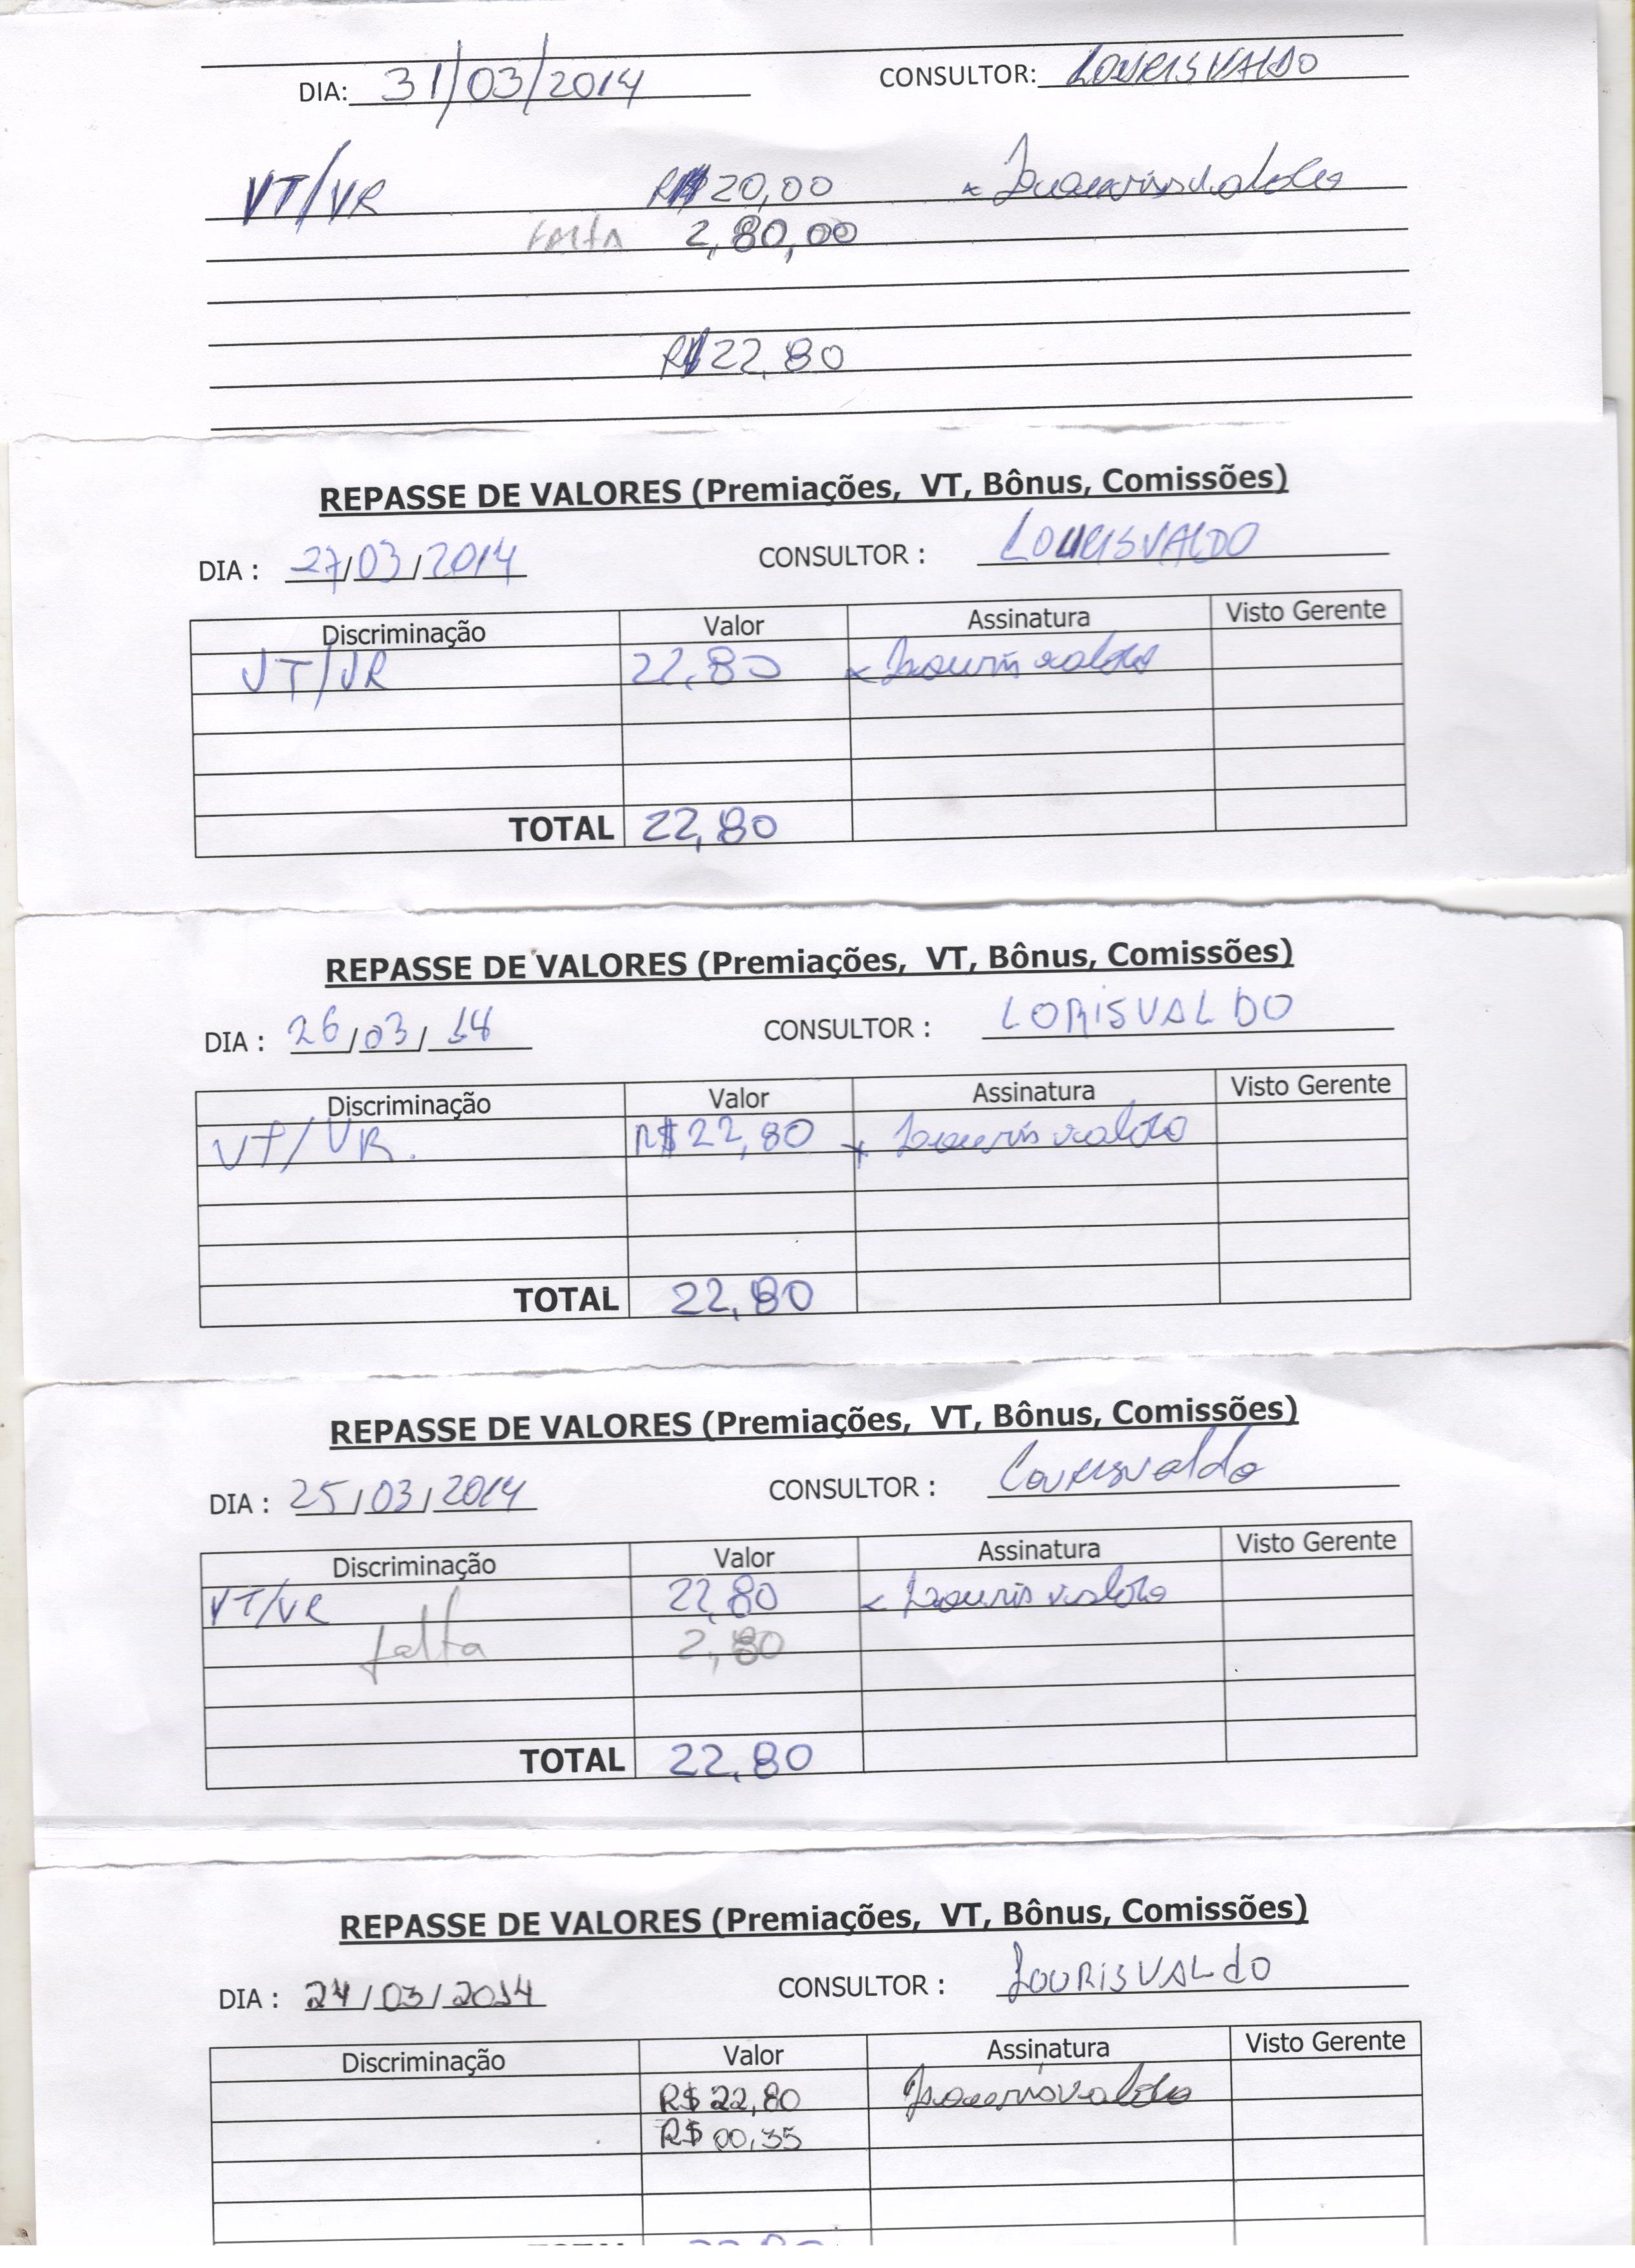 DIA: 31/03/2014 CONSULTOR: LOURISVALDO
VT/VR R$ 20,00 x Lourisvaldo
FALTA 2,80,00
R$ 22,80
REPASSE DE VALORES (Premiações, VT, Bônus, Comissões)
DIA : 27/03/2014 CONSULTOR : LOURISVALDO
Discriminação Valor Assinatura Visto Gerente
VT/VR 22,80 x Lourisvaldo
TOTAL 22,80
REPASSE DE VALORES (Premiações, VT, Bônus, Comissões)
DIA : 26/03/14 CONSULTOR : LORISVALDO
Discriminação Valor Assinatura Visto Gerente
VT/VR. R$ 22,80 x Lourisvaldo
TOTAL 22,80
REPASSE DE VALORES (Premiações, VT, Bônus, Comissões)
DIA : 25/03/2014 CONSULTOR : Lourisvaldo
Discriminação Valor Assinatura Visto Gerente
VT/VR 22,80 x Lourisvaldo
falta 2,80
TOTAL 22,80
REPASSE DE VALORES (Premiações, VT, Bônus, Comissões)
DIA : 24/03/2014 CONSULTOR : LOURISVALdO
Discriminação Valor Assinatura Visto Gerente
R$ 22,80 Lourisvaldo
R$ 00,35